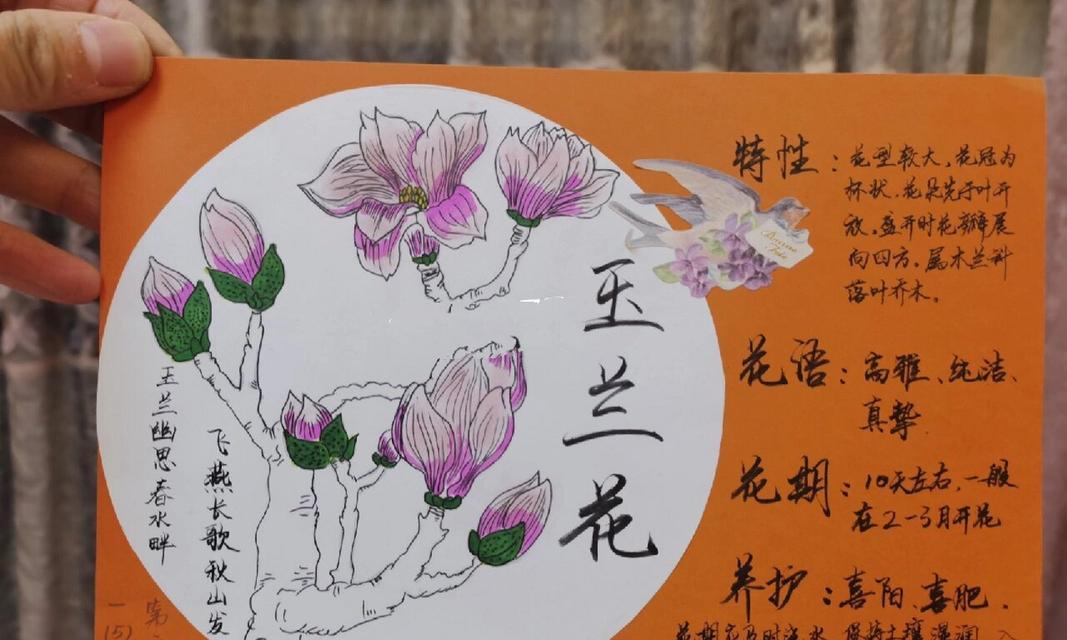 玉兰花
玉兰幽思春水畔
飞燕长歌秋山发
特性：花型较大，花冠为
杯状，花是先于叶开
放，盛开时花瓣展
向四方，属木兰科
落叶乔木。
花语：高雅、纯洁、
真挚
花期：10天左右，一般
在2-3月开花
养护：喜阳、喜肥，
花期应及时浇水，保持土壤湿润